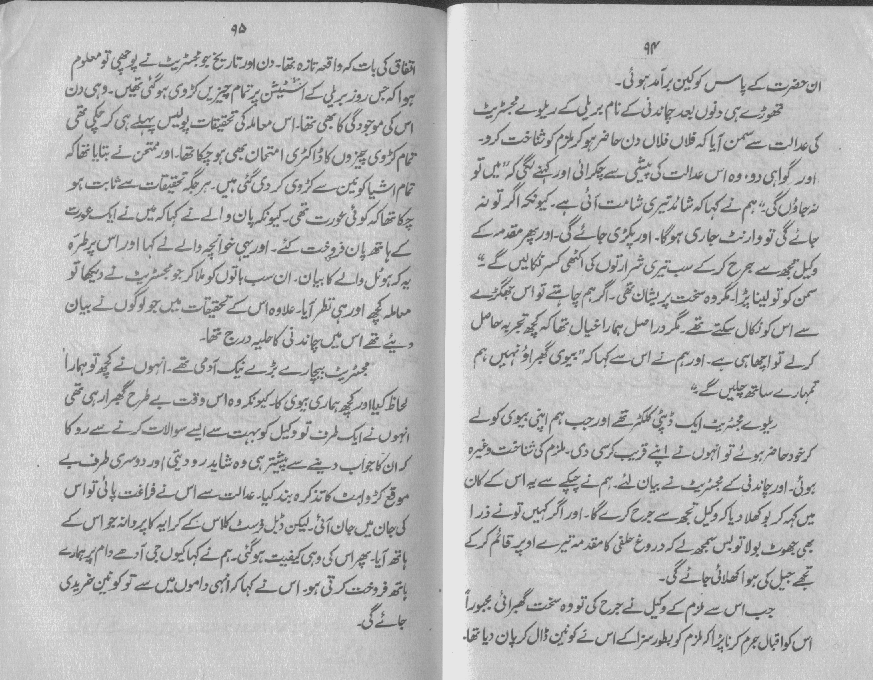 ۹۴
ان حضرت کے پاس کوکین برآمد ہوئی۔
تھوڑے ہی دنوں بعد چاندنی کے نام بریلی کے ریلوے مجسٹریٹ
کی عدالت سے سمن آیا کہ فلاں فلاں دن حاضر ہو کر ملزم کو شناخت کرو۔
اور گواہی دو، وہ اس عدالت کی پیشی سے چکرائی اور کہنے لگی کہ "میں تو
نہ جاؤں گی۔" ہم نے کہا کہ شائد تیری شامت آئی ہے۔ کیونکہ اگر تو نہ
جائے گی تو وارنٹ جاری ہوگا۔ اور پکڑی جائے گی۔ اور پھر مقدمہ کے
وکیل تجھ سے جرح کر کے سب تیری شرارتوں کی اکٹھی کسر نکالیں گے۔"
سمن کو تو لینا پڑا۔ مگر وہ سخت پریشان تھی۔ اگر ہم چاہتے تو اس جھگڑے
سے اس کو نکال سکتے تھے۔ مگر دراصل ہمارا خیال تھا کہ کچھ تجربہ حاصل
کرلے تو اچھا ہی ہے۔ اور ہم نے اس سے کہا کہ "بیوی گھبراؤ نہیں ہم
تمہارے ساتھ چلیں گے۔"
ریلوے مجسٹریٹ ایک ڈپٹی کلکٹر تھے اور جب ہم اپنی بیوی کو لے
کر خود حاضر ہوئے تو انہوں نے اپنے قریب کرسی دی۔ ملزم کی شناخت وغیرہ
ہوئی۔ اور چاندنی کے مجسٹریٹ نے بیان لئے۔ ہم نے چپکے سے یہ اس کے کان
میں کہہ کر بوکھلا دیا کہ وکیل تجھ سے جرح کرے گا۔ اور اگر کہیں تو نے ذرا
بھی جھوٹ بولا تو بس سمجھ لے کہ دروغ حلفی کا مقدمہ تیرے اوپر قائم کر کے
تجھے جیل کی ہوا کھلائی جائے گی۔
جب اس سے ملزم کے وکیل نے جرح کی تو وہ سخت گھبرائی مجبوراً
اس کو اقبال جرم کرنا پڑا کہ ملزم کو بطور سزا کے اس نے کونین ڈال کر پان دیا تھا۔
۹۵
اتفاق کی بات کہ واقعہ تازہ تھا۔ دن اور تاریخ جو مجسٹریٹ نے پوچھی تو معلوم
ہوا کہ جس روز بریلی کے اسٹیشن پر تمام چیزیں کڑوی ہوگئی تھیں۔ وہی دن
اس کی موجودگی کا بھی تھا۔ اس معاملہ کی تحقیقات پولیس پہلے ہی کر چکی تھی
تمام کڑوی چیزوں کا ڈاکٹری امتحان بھی ہو چکا تھا۔ اور ممتحن نے بتایا تھا کہ
تمام اشیا کونین سے کڑوی کر دی گئی ہیں۔ ہر جگہ تحقیقات سے ثابت ہو
چکا تھا کہ کوئی عورت تھی۔ کیونکہ پان والے نے کہا کہ میں نے ایک عورت
کے ہاتھ پان فروخت کئے۔ اور یہی خوانچہ والے نے کہا اور اس پر طرہ
یہ کہ ہوٹل والے کا بیان۔ ان سب باتوں کو ملا کر جو مجسٹریٹ نے دیکھا تو
معاملہ کچھ اور ہی نظر آیا۔ علاوہ اس کے تحقیقات میں جو لوگوں نے بیان
دیئے تھے اس میں چاندنی کا حلیہ درج تھا۔
مجسٹریٹ بیچارے بڑے نیک آدمی تھے۔ انہوں نے کچھ تو ہمارا
لحاظ کیا اور کچھ ہماری بیوی کا۔ کیونکہ وہ اس وقت بے طرح گھبرا رہی تھی
انہوں نے ایک طرف تو وکیل کو بہت سے ایسے سوالات کرنے سے روکا
کہ ان کا جواب دینے سے پیشتر ہی وہ شاید رو دیتی اور دوسری طرف بے
موقع کڑواہٹ کا تذکرہ بند کیا۔ عدالت سے اس نے فراغت پائی تو اس
کی جان میں جان آئی۔ لیکن ڈبل فرسٹ کلاس کے کرایہ کا پروانہ جو اس کے
ہاتھ آیا۔ پھر اس کی وہی کیفیت ہوگئی۔ ہم نے کہا کیوں جی آدھے دام پر ہمارے
ہاتھ فروخت کرتی ہو۔ اس نے کہا کہ انہی داموں میں سے تو کونین خریدی
جائے گی۔